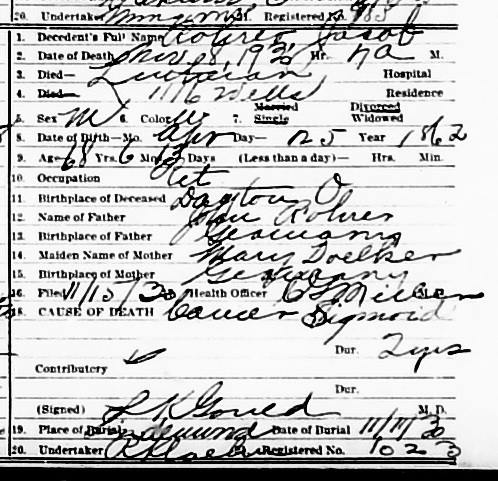 20. Undertaker Registered No. 983
1. Decedent's Full Name Rohrer Jacob
2. Date of Death Nov 8, 1930 Hr. 7 a M.
3. Died— Lutheran Hospital
4. Died— 1116 Wells Residence
5. Sex M 6. Color W 7. Married Single Divorced Widowed
8. Date of Birth—Mo. Apr Day— 25 Year 1862
9. Age 68 Yrs. 6 Mo. 13 Days (Less than a day)— Hrs. Min.
10. Occupation
11. Birthplace of Deceased Dayton O
12. Name of Father Rohrer
13. Birthplace of Father Germany
14. Maiden Name of Mother Mary Doelker
15. Birthplace of Mother Germany
16. Filed 11/15/30 Health Officer
18. CAUSE OF DEATH Cancer Sigmoid
Dur. 2 yrs
Contributory
Dur.
(Signed) L K Gould M. D.
19. Place of Burial Lindenwood Date of Burial 11/11/30
20. Undertaker Registered No. 1023